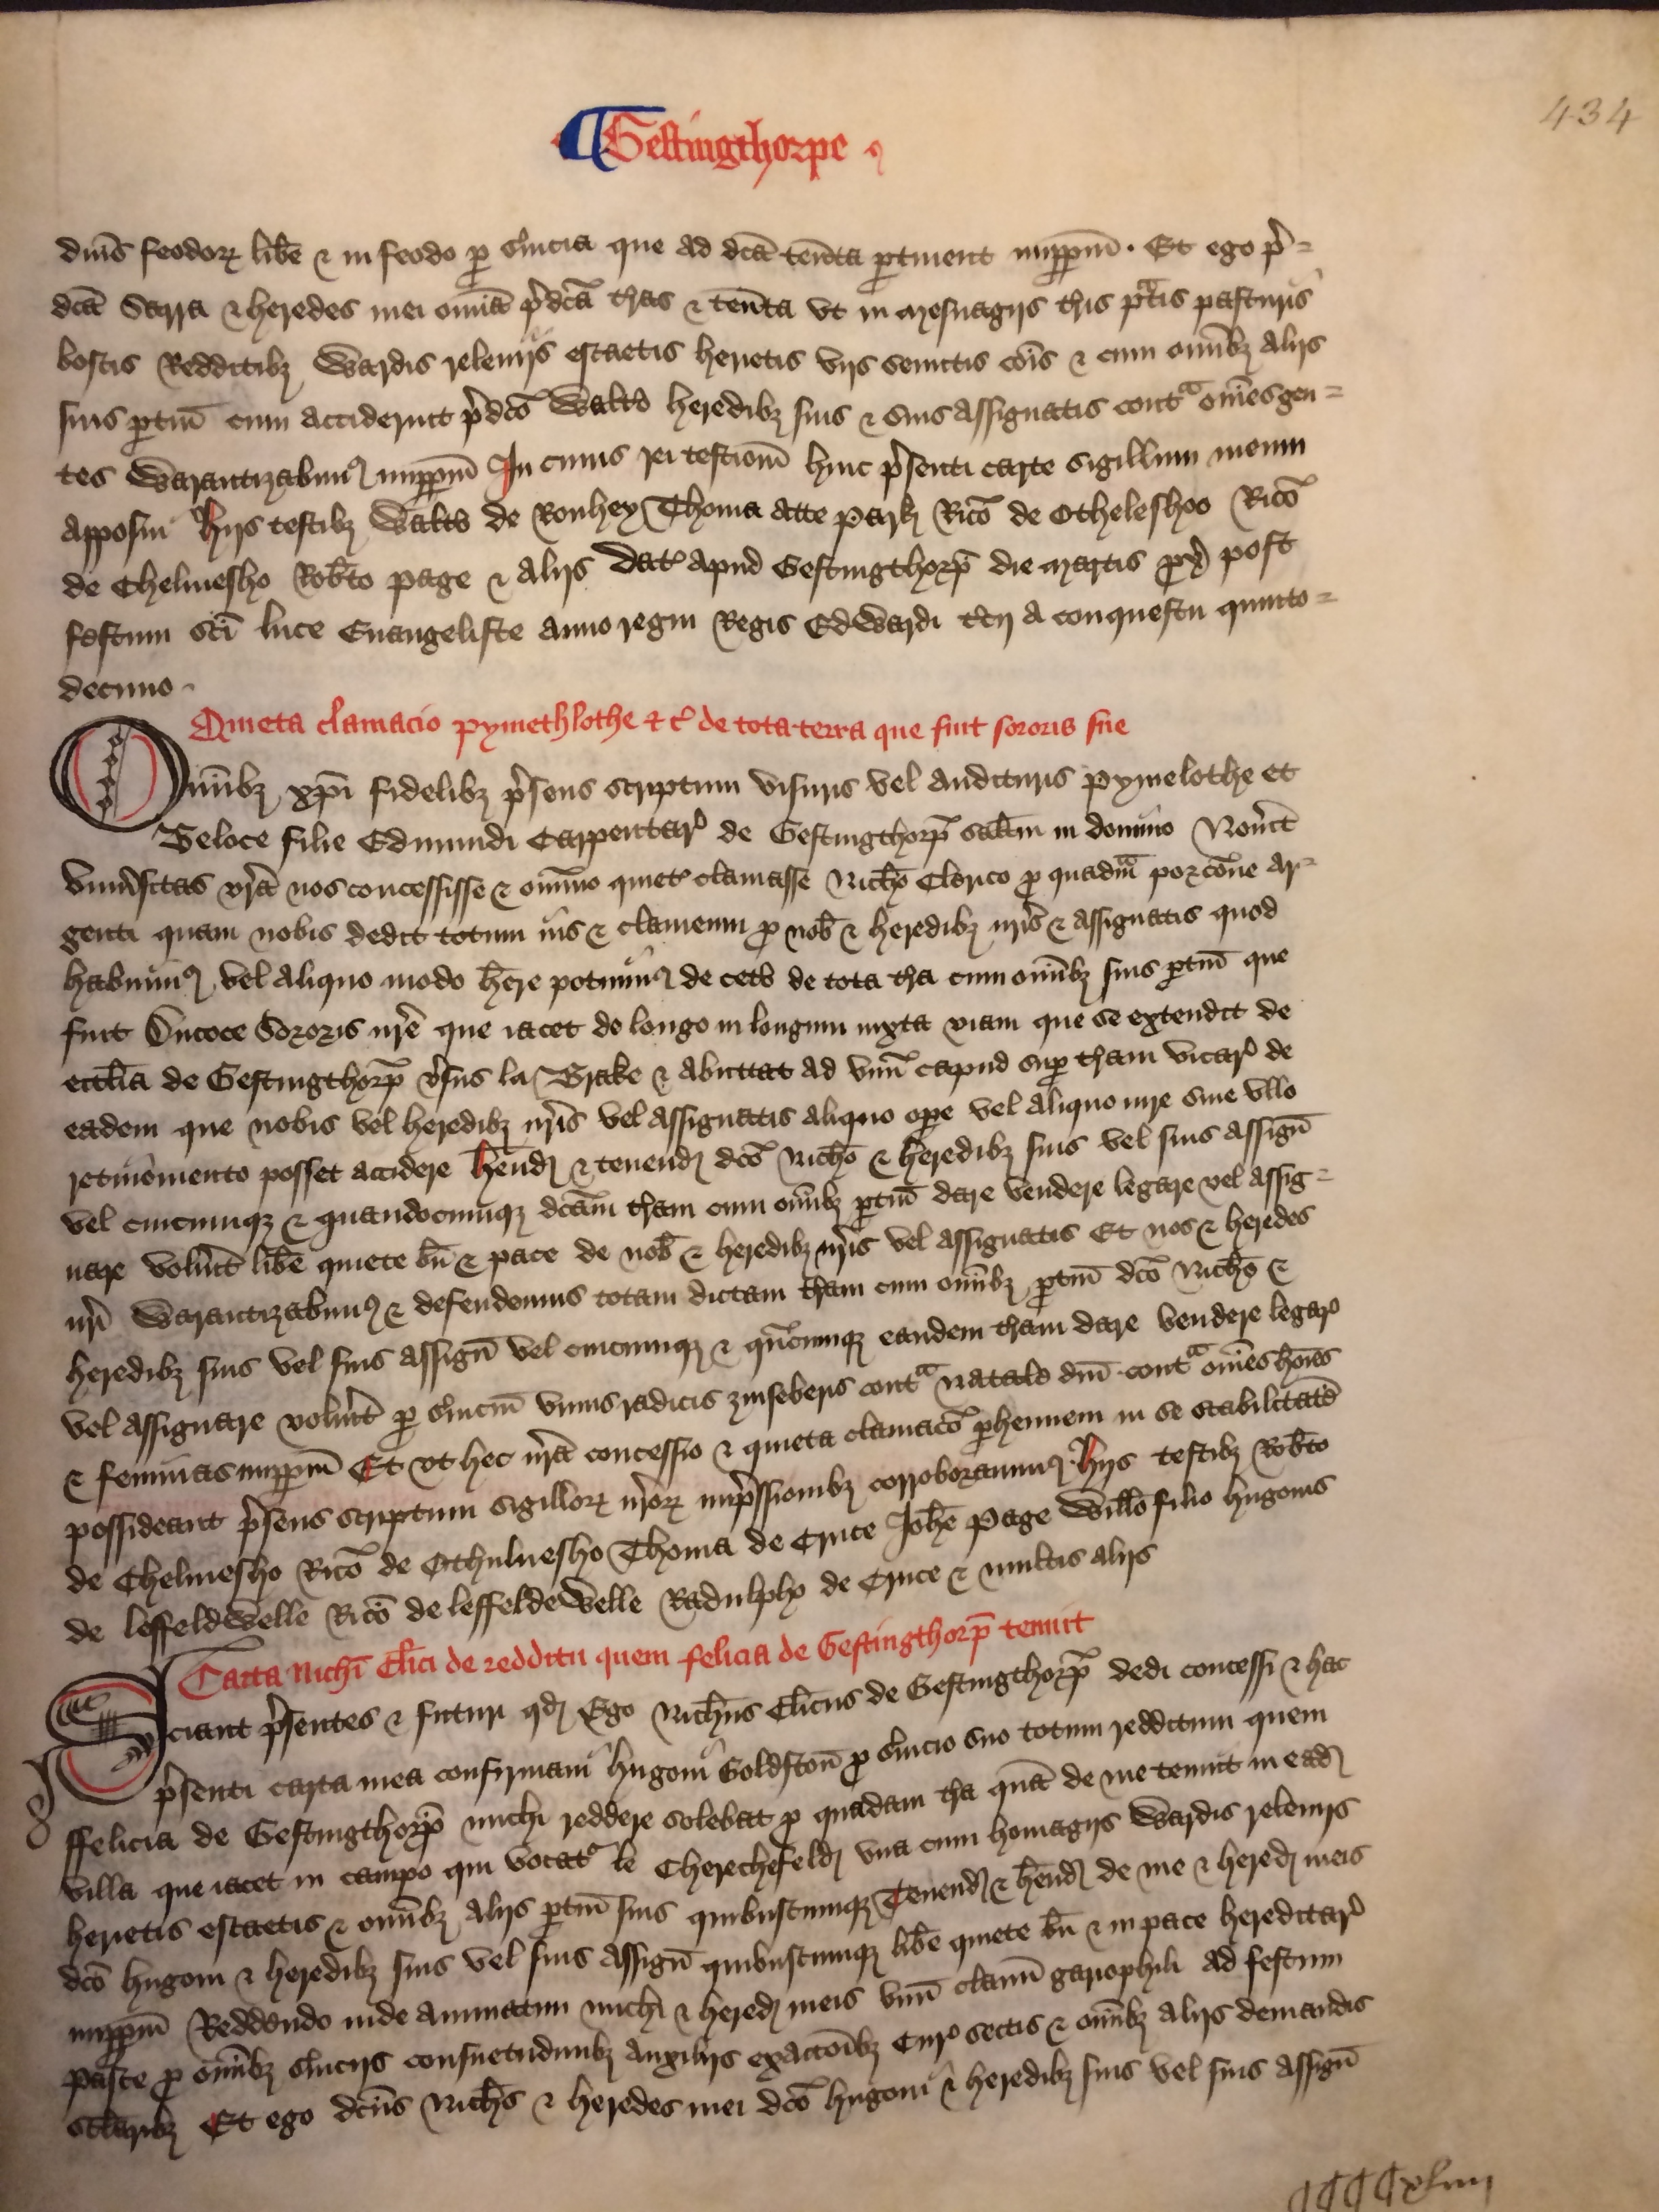 434
Gestingthorpe
dnis feodorꝝ libe & in feodo ꝑ s'uicia que ad dcā tenta ꝑtinent imꝑꝑm. Et ego p'=
dcā Sarra & heredes mei omia p'dcā t'ras & tenta vt in mesuagijs t'ris p'tis pasturis
boscis Redditibȝ Wardis releuijs escaetis herietis vijs semitis cōis & cum omībȝ alijs
suis ꝑtin cum acciderint p'dcō Walt'o heredibȝ suis & suis assignatis contᵃ omēs gen=
tes Warantizabimꝰ imꝑꝑm In cuius rei testiom huic p'senti carte sigillum meum
apposui Hijs testibȝ Walt'o de Ronhey Thoma atte Park Ricō de Otheleshoo Ricō
de Chelmesho Rob'to Page & alijs Dat' apud Gestingthorp die martis ꝓx' post
festum sci luce Euangeliste anno regni Regis Edwardi t'cij a conquestu quinto=
decimo
Quieta clamacio pymethlothe & c' de tota terra que fuit sororis sue
Omībȝ xpi fidelibȝ p'sens scriptum visuris vel audituris Pymelothe et
Geloce filie Edmundi Carpentar' de Gestingthorp salt'm in domino Nou'it
vniu'sitas vrā nos concessisse & omīno quiet' clamasse Nichō Clerico ꝓ quadm̄ porcōne ar=
genti quam nobis dedit totum ius & clameum ꝓ nob & heredibȝ nris & assignatis quod
habuimꝰ vel aliquo modo here potuimꝰ de cet'o de tota t'ra cum omībȝ suis ꝑtin que
fuit Dncoce Sororis nre que iacet de longo in longum iuxta viam que se extendit de
eccl'ia de Gestingthorp v'sus la Brake & abuttat ad vnū capud suꝑ t'ram vicar' de
eadem que nobis vel heredibȝ nris vel assignatis aliquo oꝑe vel aliquo iure sine vllo
retinemento posset accidere hend & tenend dcō Nichō & heredibȝ suis vel suis assign
vel cuicumqȝ & quandocumqȝ dcām t'ram cum omībȝ ꝑtin dare vendere legare vel assig=
nare volu'it libe quiete bn & pace de nob & heredibȝ nris vel assignatis Et nos & heredes
nri Warantizabimꝰ & defendemus totam dictam t'ram cum omībȝ ꝑtin dcō Nichō &
heredibȝ suis vel suis assign vel cuicumqȝ & qn̄cumqȝ eandem t'ram dare vendere legar'
vel assignare volu'it ꝑ s'uicm vnius radicis zinseberis contᵃ Natale dni contᵃ omēs hoīes
& feminas imꝑꝑm Et vt hec nrā concessio & quieta clamacō ꝑhennem in se stabilitate
possideant p'sens scriptum sigillorꝝ nrorꝝ imp'ssionibȝ corroborauimꝰ Hijs testibȝ Rob'to
de Chelmesho Ricō de Othuluesho Thoma de Cruce Johē Page Willō filio Hugonis
de leffeldwelle Ricō de leffeldewelle Radulpho de Cruce & multis alijs
Carta Nichi Clici de redditu quem felicia de Gestingthorp tenuit
Sciant p'sentes & futuri qd Ego Nichus Clicus de Gestingthorp dedi concessi & hac
p'senti carta mea confirmaui Hugoni Goldston ꝓ s'uicio suo totum redditum quem
ffelicia de Gestingthorp michi reddere solebat ꝓ quadam t'ra quā de me tenuit in ead
villa que iacet in campo qui vocat' le Cherchefeld vna cum homagijs Wardis releuijs
herietis escaetis & omībȝ alijs ꝑtin suis quibuscumqȝ Tenend & hend de me & hered meis
dcō Hugoni & heredibȝ suis vel suis assign quibuscumqȝ libe quiete bn & in pace hereditar'
imꝑꝑm Reddendo inde annuatim michi & hered meis vnū clauū gariophili ad festum
Pasce ꝓ omībȝ s'uicijs consuetudinibȝ auxilijs exaccōibȝ Cur' sectis & omībȝ alijs demandis
sclaribȝ Et ego dcus Nichs & heredes mei dcō Hugoni & heredibȝ suis vel suis assign